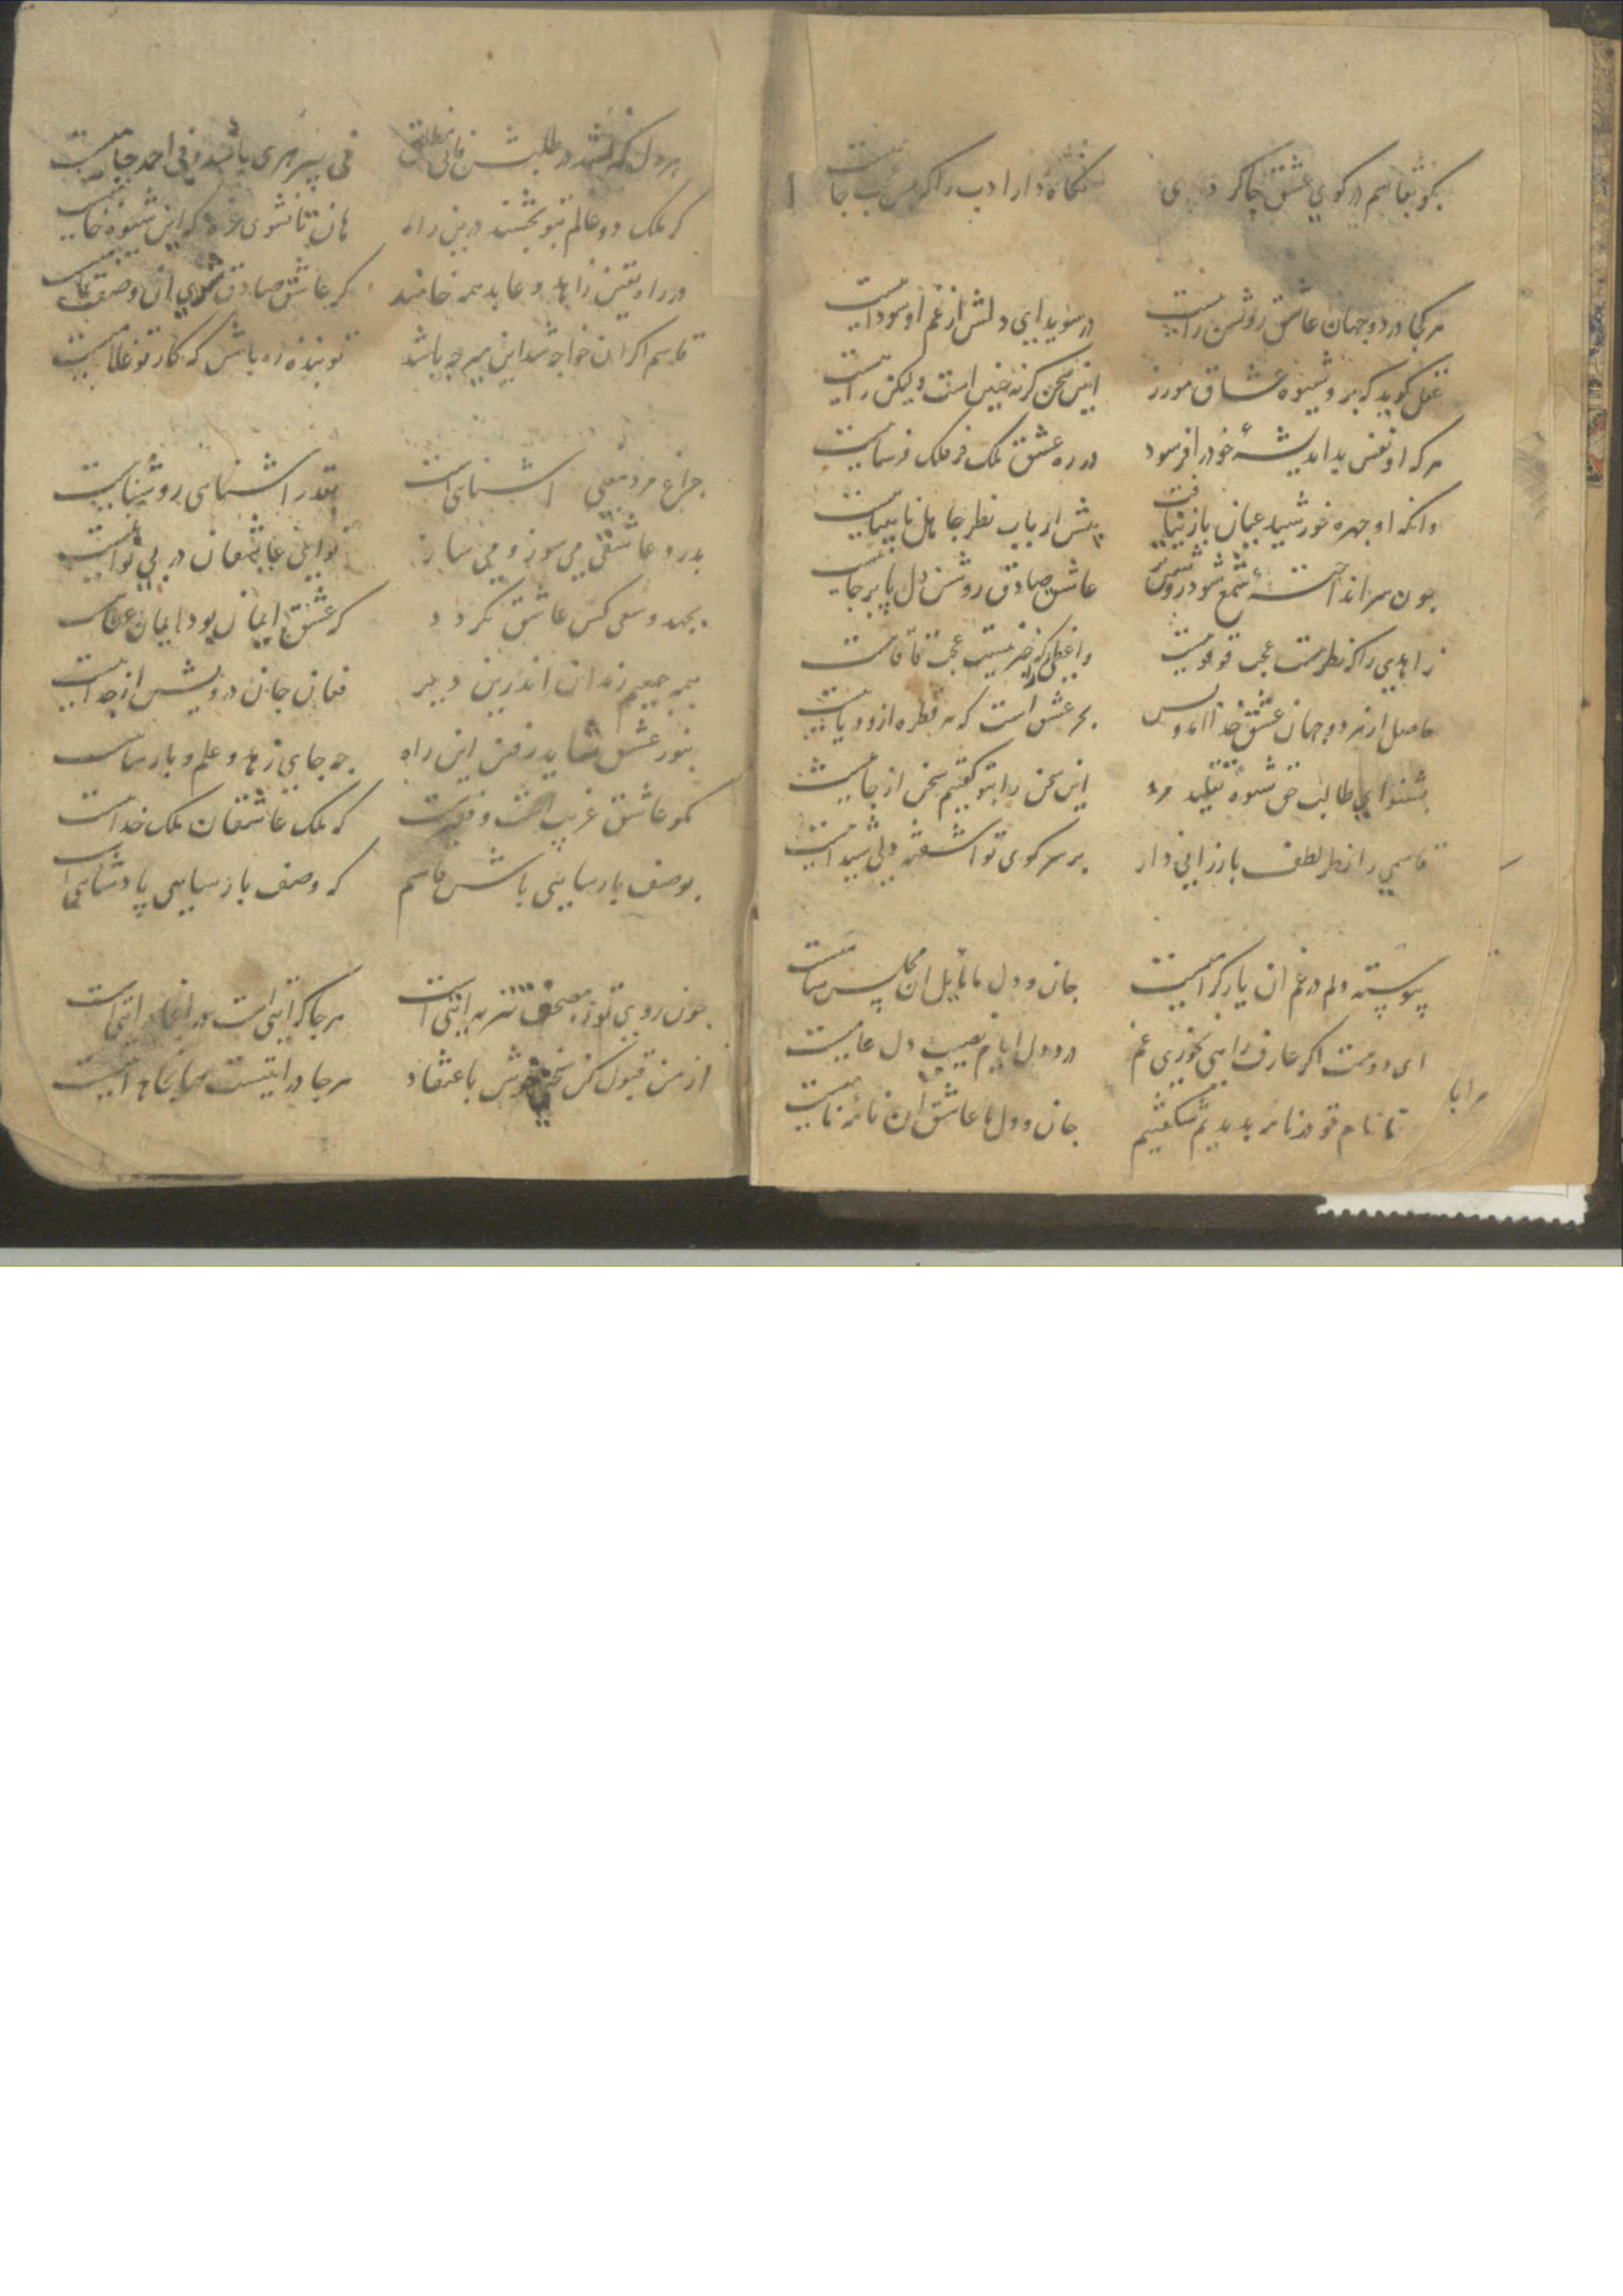 بکو بقاسم در کوی عشق چاکر دی نگاه دار ادب را که بس جاست
هر کجا در دو جهان عاشق روشن رایست در سویدای دلش از غم او سوداییست
عقل کوید که برو شیوه عشاق مورز این سخن کرنه چنین است ولیکن راییست
هر که او نفس بداندیشهٔ خود را فرسود در ره عشق ملک فر فلک فرساییست
وانکه او چهره خورشید عیان بازنیافت پیش ارباب نظر جاهل نابیناییست
چون سر انداختهٔ شمع شود روشن عاشق صادق روشن دل پابرجاییست
زاهدی را که نظر نیست عجب قوقوییست واعظی را که خبر نیست عجب قاقاییست
حاصل از هر دو جهان عشق خدا آمد و بس بحر عشق است که هر قطره ازو دریاییست
بشنو ای طالب حق شیوه تقلید مرو این سخن را بتو کفتیم سخن از جاییست
قاسمی را نظر لطف بارزانی دار بر سر کوی تو آشفته دلی شیداییست
پیوسته دلم در غم آن یار کرامیست جان و دل ما مایل آن مجلس سامیست
ای دوست اکر عارف راهی نخوری غم درد دل ایام نصیب دل عامیست
تا نام تو در نامه بدیدیم شکفتیم جان و دل ما عاشق آن نامهٔ نامیست
هر دل که نشد در طلبش فانی مطلق فی پیر هری باشد و فی احمد جامیست
کر ملک دو عالم بتو بخشند درین راه هان تا نشوی غره که این شیوه خامیست
در راه یقین زاهد و عابد همه خامند کر عاشق صادق شوی آن وصف تمامیست
قاسم اکر آن خواجه شد این میر چه باشد تو بنده ره باش که کار تو غلامیست
چراغ مرد معنی آشناییست بقدر آشنایی روشناییست
بدرد عاشقی می سوز و می ساز نوای عاشقان در بی نواییست
بجهد و سعی کس عاشق نکردد کر عشق ایمان بود ایمان عطاییست
همه جمعیم رندان اندرین دیر فغان جان درویش از جداییست
بنور عشق شاید رفتن این راه چه جای زهد و علم و پارساییست
مکو عاشق غریب است و فقیرست که ملک عاشقان ملک خداییست
بوصف پارسایی باش قاسم که وصف پارسایی پادشاییست
چون روی تو ز مصحف تنزیه آیتی است هر جا که آیتی است در آغاز آیتی است
از من قبول کن سخنی خوش باعتقاد هر جا درایتیست
هر ابا